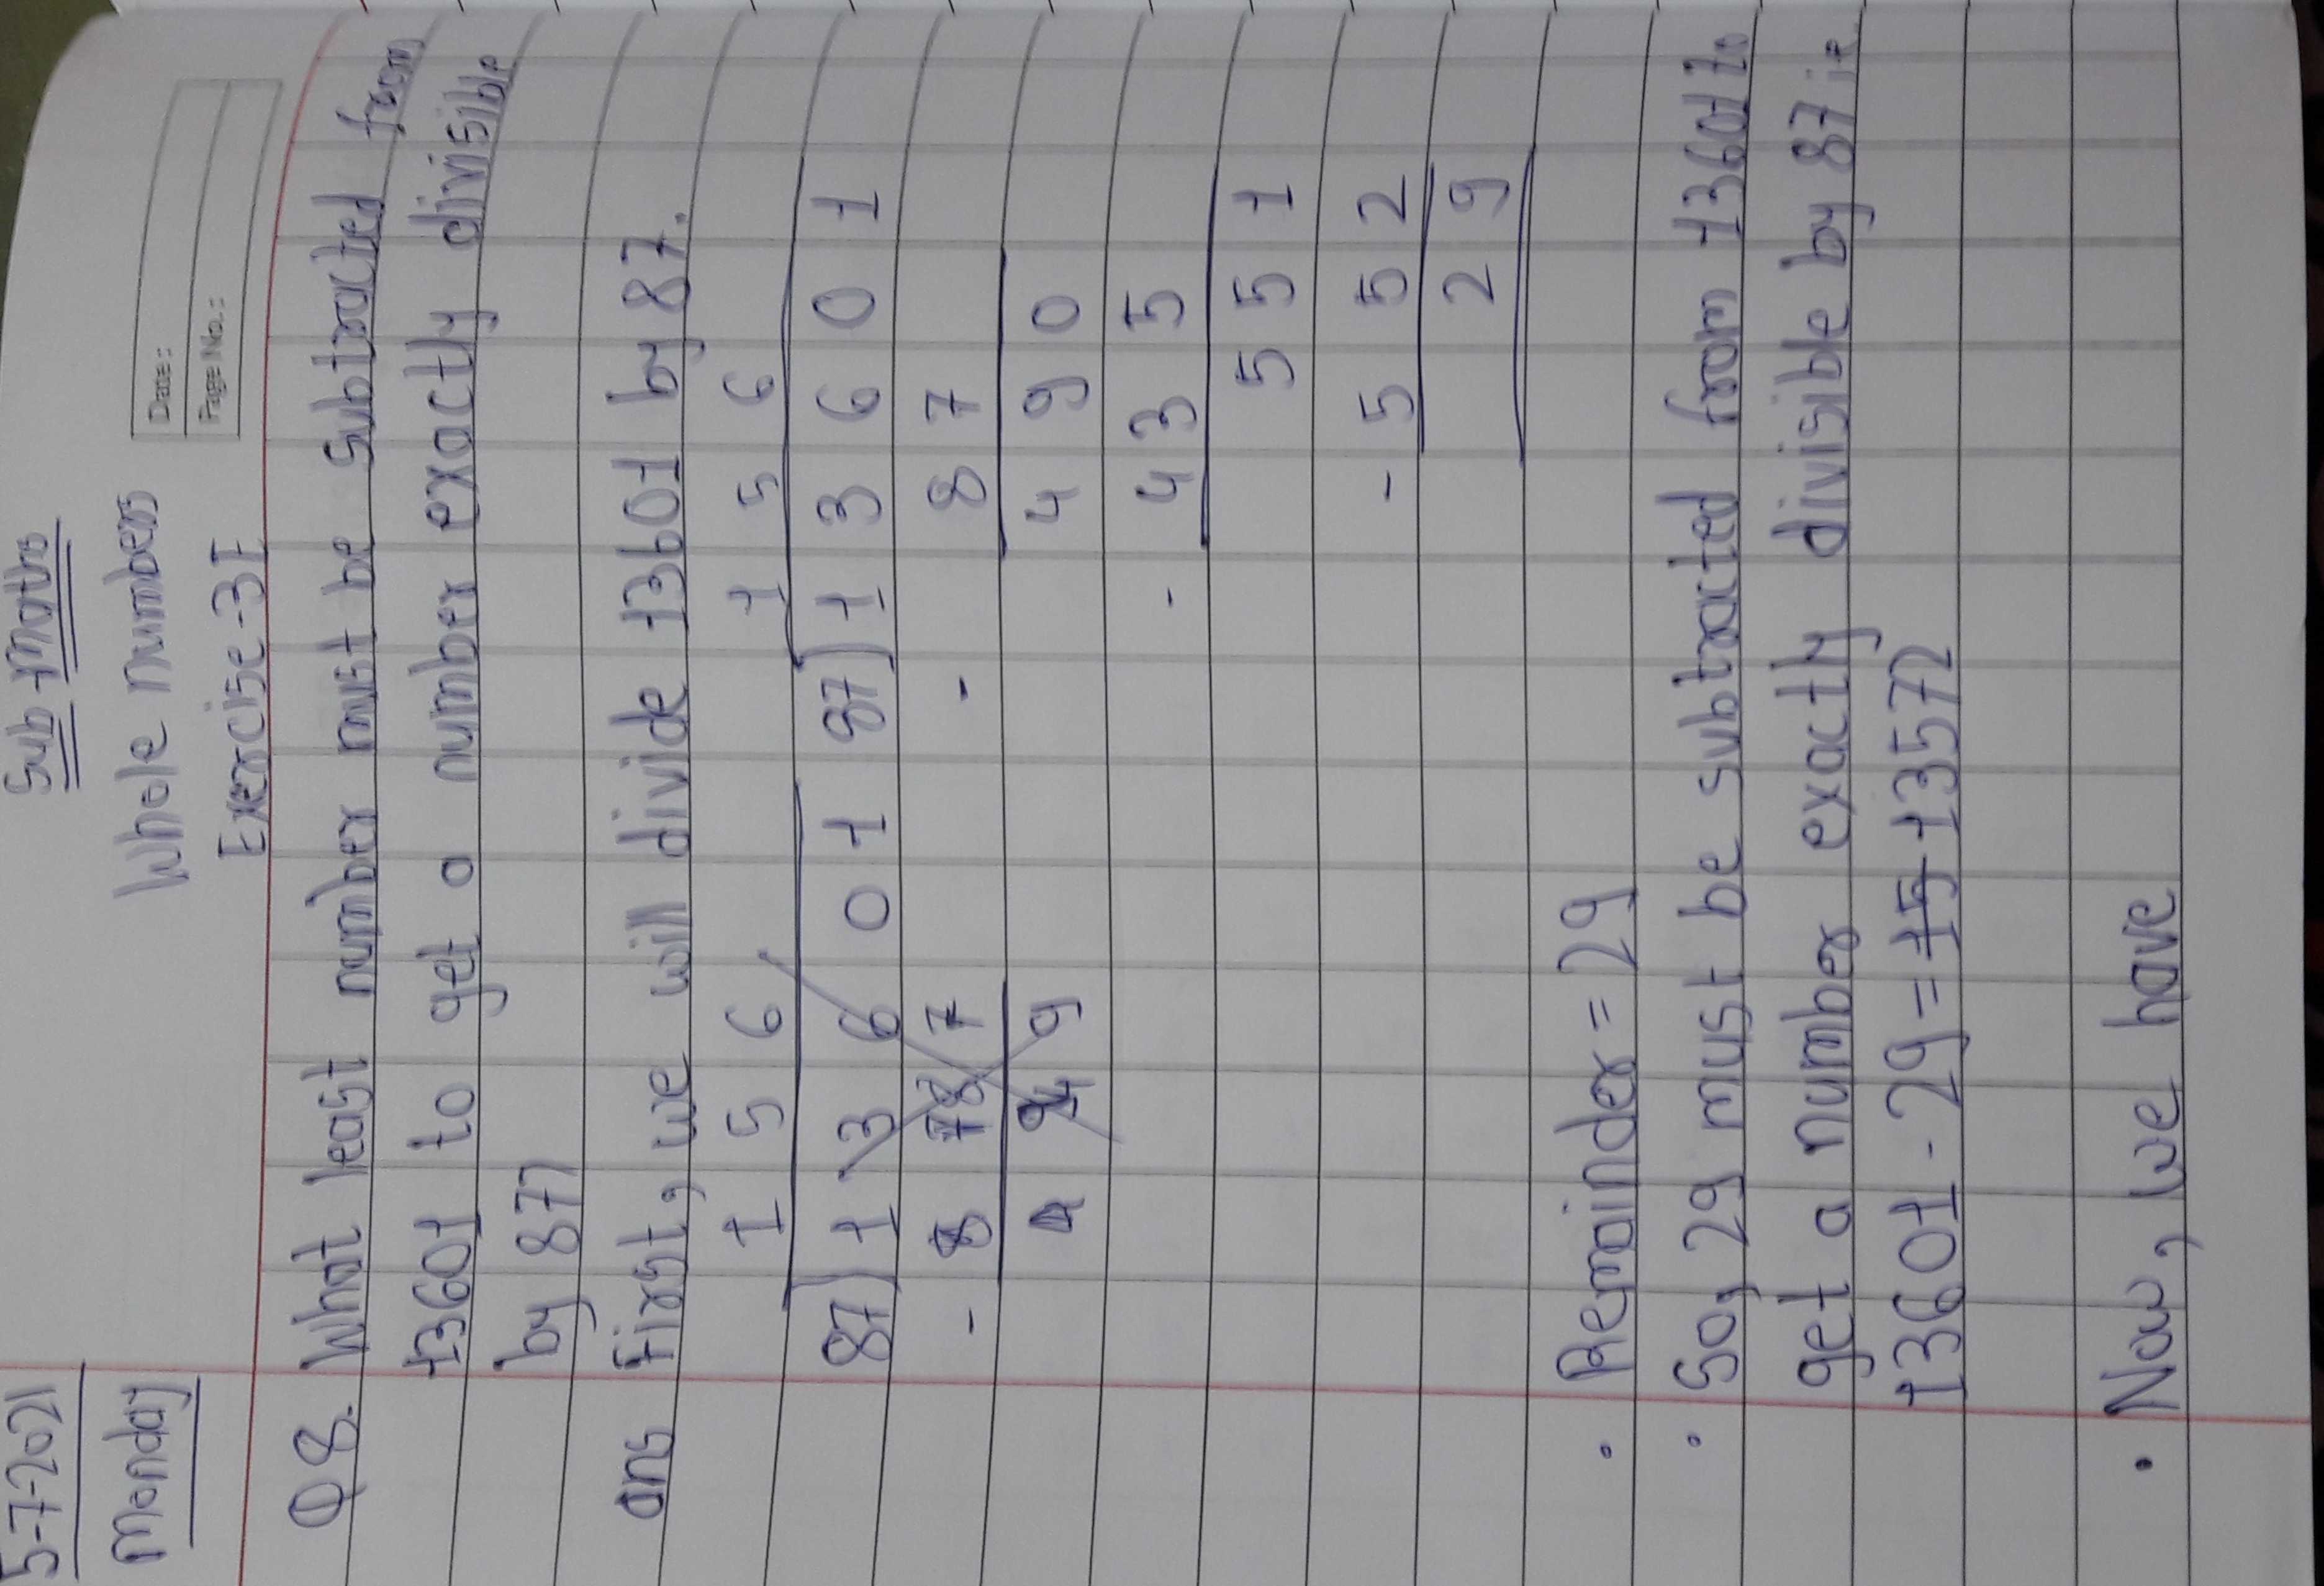 5-7-2021
Monday
Sub - Maths
Date:
Page No.:
Whole numbers
Exercise - 3E
Q8. What least number must be subtracted from
13601 to get a number exactly divisible
by 87?
ans First, we will divide 13601 by 87.
1 5 6
87) 1 3 6 0 1
- 8 7
4 9
1 5 6
87) 1 3 6 0 1
- 8 7
4 9 0
- 4 3 5
5 5 1
- 5 5 2
2 9
• Remainder = 29
• So, 29 must be subtracted from 13601 to
get a number exactly divisible by 87 i.e.
13601 - 29 = 15 13572
• Now, we have